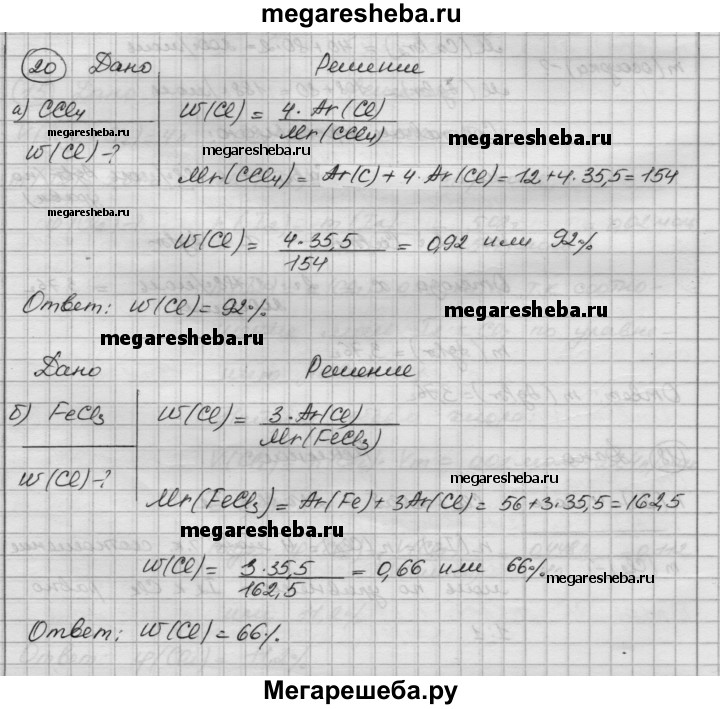 megaresheba.ru
20 Дано Решение
а) CCl₄ W(Cl) = 4·Ar(Cl) / Mr(CCl₄)
megaresheba.ru megaresheba.ru
W(Cl)-? megaresheba.ru
Mr(CCl₄) = Ar(C) + 4·Ar(Cl) = 12+4·35,5 = 154
W(Cl) = 4·35,5 / 154 = 0,92 или 92%
Ответ: W(Cl) = 92%
megaresheba.ru megaresheba.ru
Дано Решение
б) FeCl₃ W(Cl) = 3·Ar(Cl) / Mr(FeCl₃)
W(Cl)-? megaresheba.ru
Mr(FeCl₃) = Ar(Fe) + 3Ar(Cl) = 56+3·35,5 = 162,5
megaresheba.ru
W(Cl) = 3·35,5 / 162,5 = 0,66 или 66%
megaresheba.ru
Ответ: W(Cl) = 66%.
Мегарешеба.ру